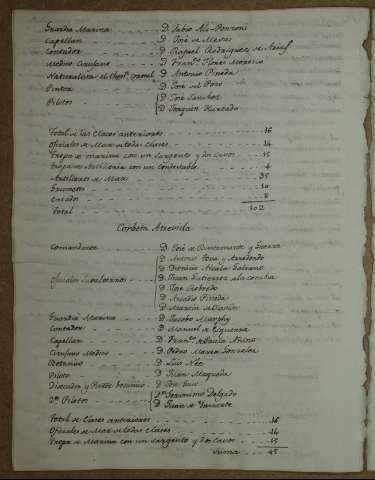 Guardia Marina - - - D. Fabio Ala-Ponzoni
Capellan - - - D. José de Mesa
Contador - - - D. Rafael Rodriguez de Arias
Medico Cirujano - - - D. Fran.co Flores Moreno
Naturalista - - - D. Antonio Pineda
Pintor - - - D. José del Pozo
Pilotos - - - D. José Sanchez
D. Joaquin Hurtado
Total de las Clases anteriores - - - 16
Oficiales de Mar de todas clases - - - 14
Tropa de marina con un Sargento y dos cavos - - - 15
Tropa de Artilleria con un Condestable - - - 4
Artilleros de Mar - - - 35
Grumetes - - - 10
Criados - - - 8
Total - - - 102
Corbeta Atrevida
Comandante - - - D. José de Bustamante y Guerra
Oficiales Subalternos - - - D. Antonio Tova y Arredondo
D. Dionisio Alcala Galiano
D. Juan Gutierrez de la Concha
D. José Robredo
D. Arcadio Pineda
D. Martin de Olavide
Guardia Marina - - - D. Jacobo Murphy
Contador - - - D. Manuel de Ezquerra
Capellan - - - D. Fran.co de Paula Añino
Cirujano Medico - - - D. Pedro Maria Gonzalez
Botanico - - - D. Luis Née
Piloto - - - D. Juan Maqueda
Disecador y Pintor botanico - - - D. José Guio
2.os Pilotos - - - D. Geronimo Delgado
D. Juan de Inciarte
Total de Clases anteriores - - - 16
Oficiales de Mar de todas clases - - - 14
Tropa de Marina con un sargento y dos Cavos - - - 15
Suma - - - 45